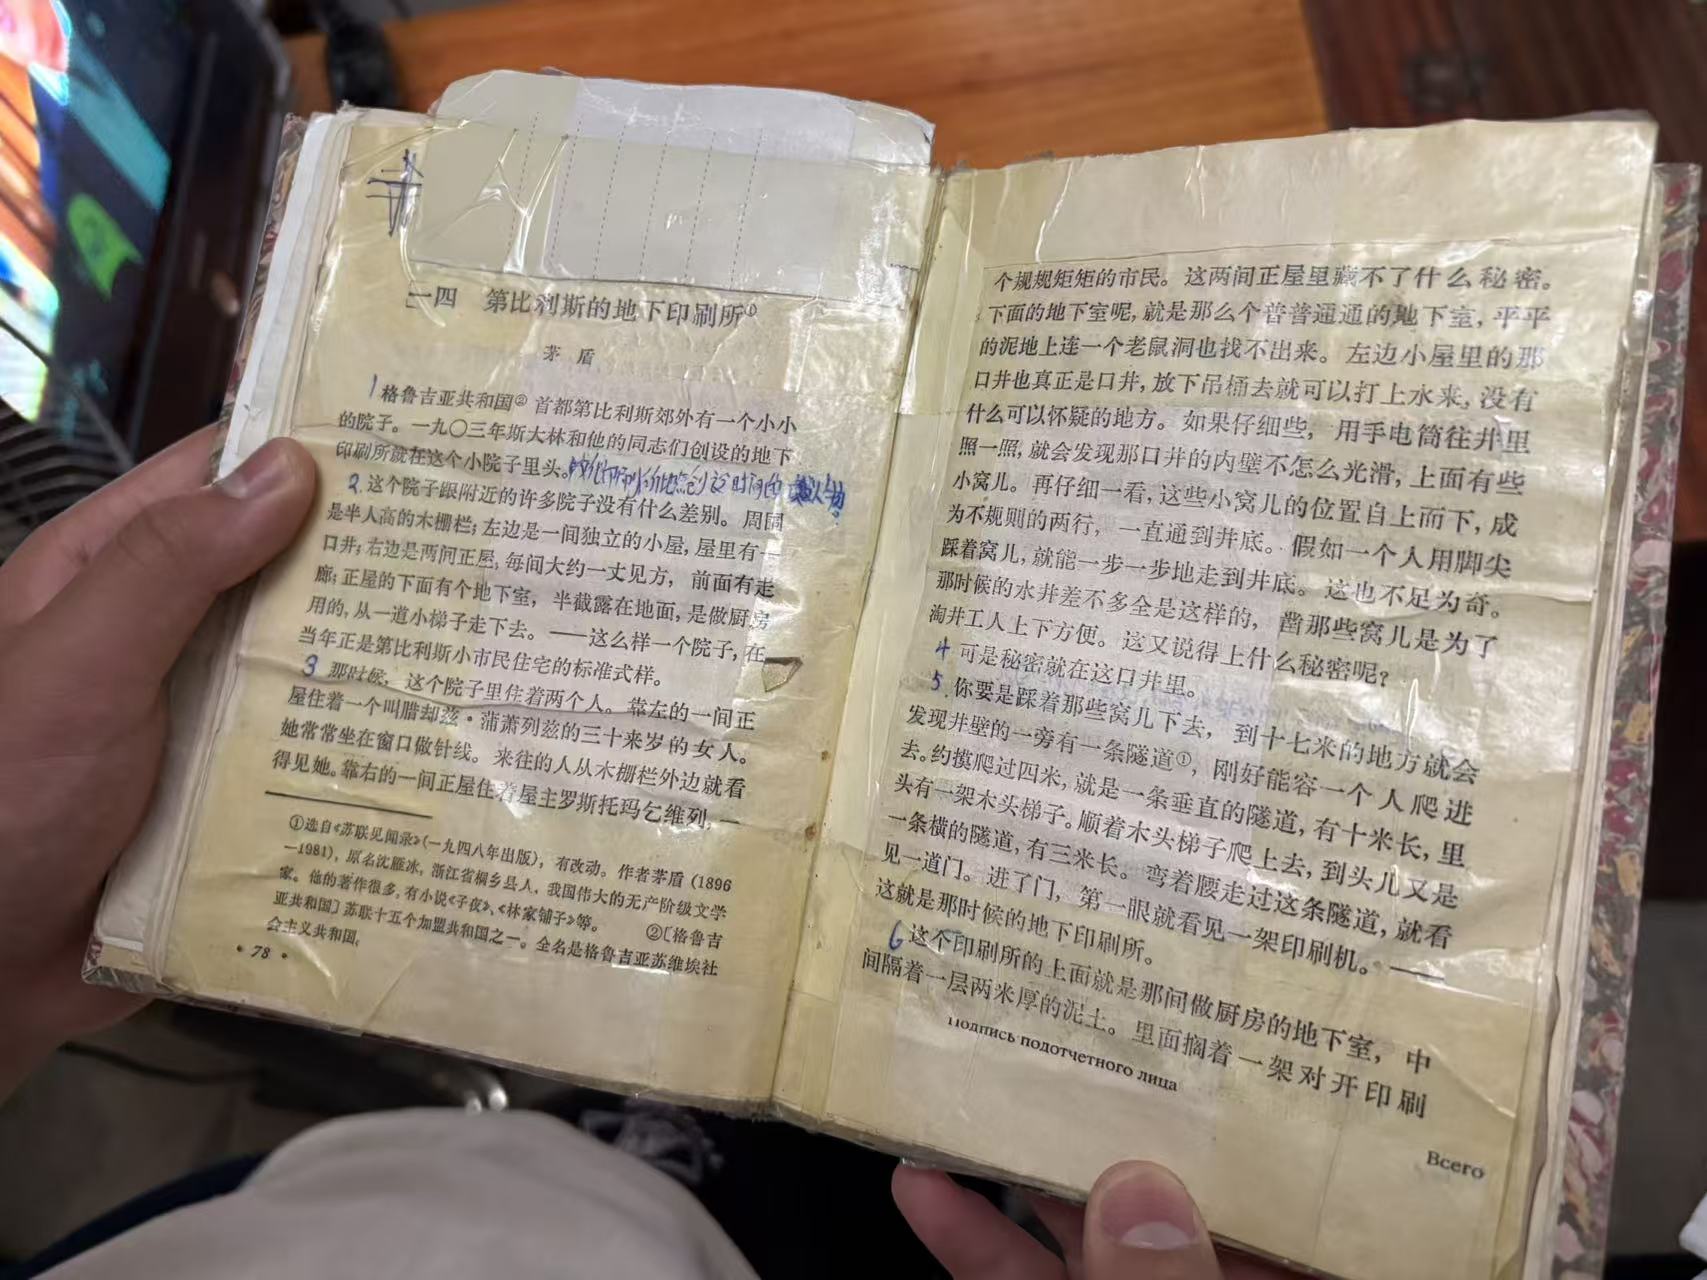 一四 第比利斯的地下印刷所①
茅 盾
1 格鲁吉亚共和国② 首都第比利斯郊外有一个小小
的院子。一九〇三年斯大林和他的同志们创设的地下
印刷所就在这个小院子里头。
2 这个院子跟附近的许多院子没有什么差别。周围
是半人高的木栅栏；左边是一间独立的小屋，屋里有一
口井；右边是两间正屋，每间大约一丈见方，前面有走
廊；正屋的下面有个地下室，半截露在地面，是做厨房
用的，从一道小梯子走下去。——这么样一个院子，在
当年正是第比利斯小市民住宅的标准式样。
3 那时候，这个院子里住着两个人。靠左的一间正
屋住着一个叫腊却兹·蒲萧列兹的三十来岁的女人。
她常常坐在窗口做针线。来往的人从木栅栏外边就看
得见她。靠右的一间正屋住着屋主罗斯托玛乞维列，一
①选自《苏联见闻录》（一九四八年出版），有改动。作者茅盾（1896
—1981），原名沈雁冰，浙江省桐乡县人，我国伟大的无产阶级文学
家。他的著作很多，有小说《子夜》、《林家铺子》等。 ②〔格鲁吉
亚共和国〕苏联十五个加盟共和国之一。全名是格鲁吉亚苏维埃社
会主义共和国。
·78·
个规规矩矩的市民。这两间正屋里藏不了什么秘密。
下面的地下室呢，就是那么个普普通通的地下室，平平
的泥地上连一个老鼠洞也找不出来。左边小屋里的那
口井也真正是口井，放下吊桶去就可以打上水来，没有
什么可以怀疑的地方。如果仔细些，用手电筒往井里
照一照，就会发现那口井的内壁不怎么光滑，上面有些
小窝儿。再仔细一看，这些小窝儿的位置自上而下，成
为不规则的两行，一直通到井底。假如一个人用脚尖
踩着窝儿，就能一步一步地走到井底。这也不足为奇。
那时候的水井差不多全是这样的，凿那些窝儿是为了
淘井工人上下方便。这又说得上什么秘密呢？
4 可是秘密就在这口井里。
5 你要是踩着那些窝儿下去，到十七米的地方就会
发现井壁的一旁有一条隧道①，刚好能容一个人爬进
去。约摸爬过四米，就是一条垂直的隧道，有十米长，里
头有一架木头梯子。顺着木头梯子爬上去，到头儿又是
一条横的隧道，有三米长。弯着腰走过这条隧道，就看
见一道门。进了门，第一眼就看见一架印刷机。——
这就是那时候的地下印刷所。
6 这个印刷所的上面就是那间做厨房的地下室，中
间隔着一层两米厚的泥土。里面搁着一架对开印刷
Подпись подотчетного лица
Всего